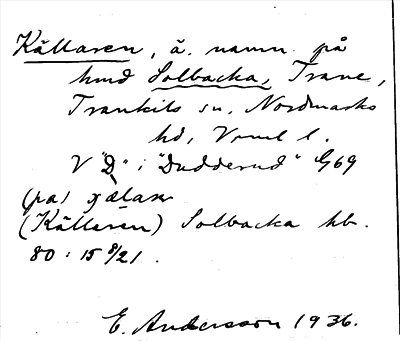 Källaren, ä. namn på
hmd Solbacka, Trane,
Trankils sn, Nordmarks
hd, Vrml l.
V "D" i "Dudderud" G69
(pa) çælaṣ
(Källeren) Solbacka hb.
80 : 15 8/21.
E. Andersson 1936.